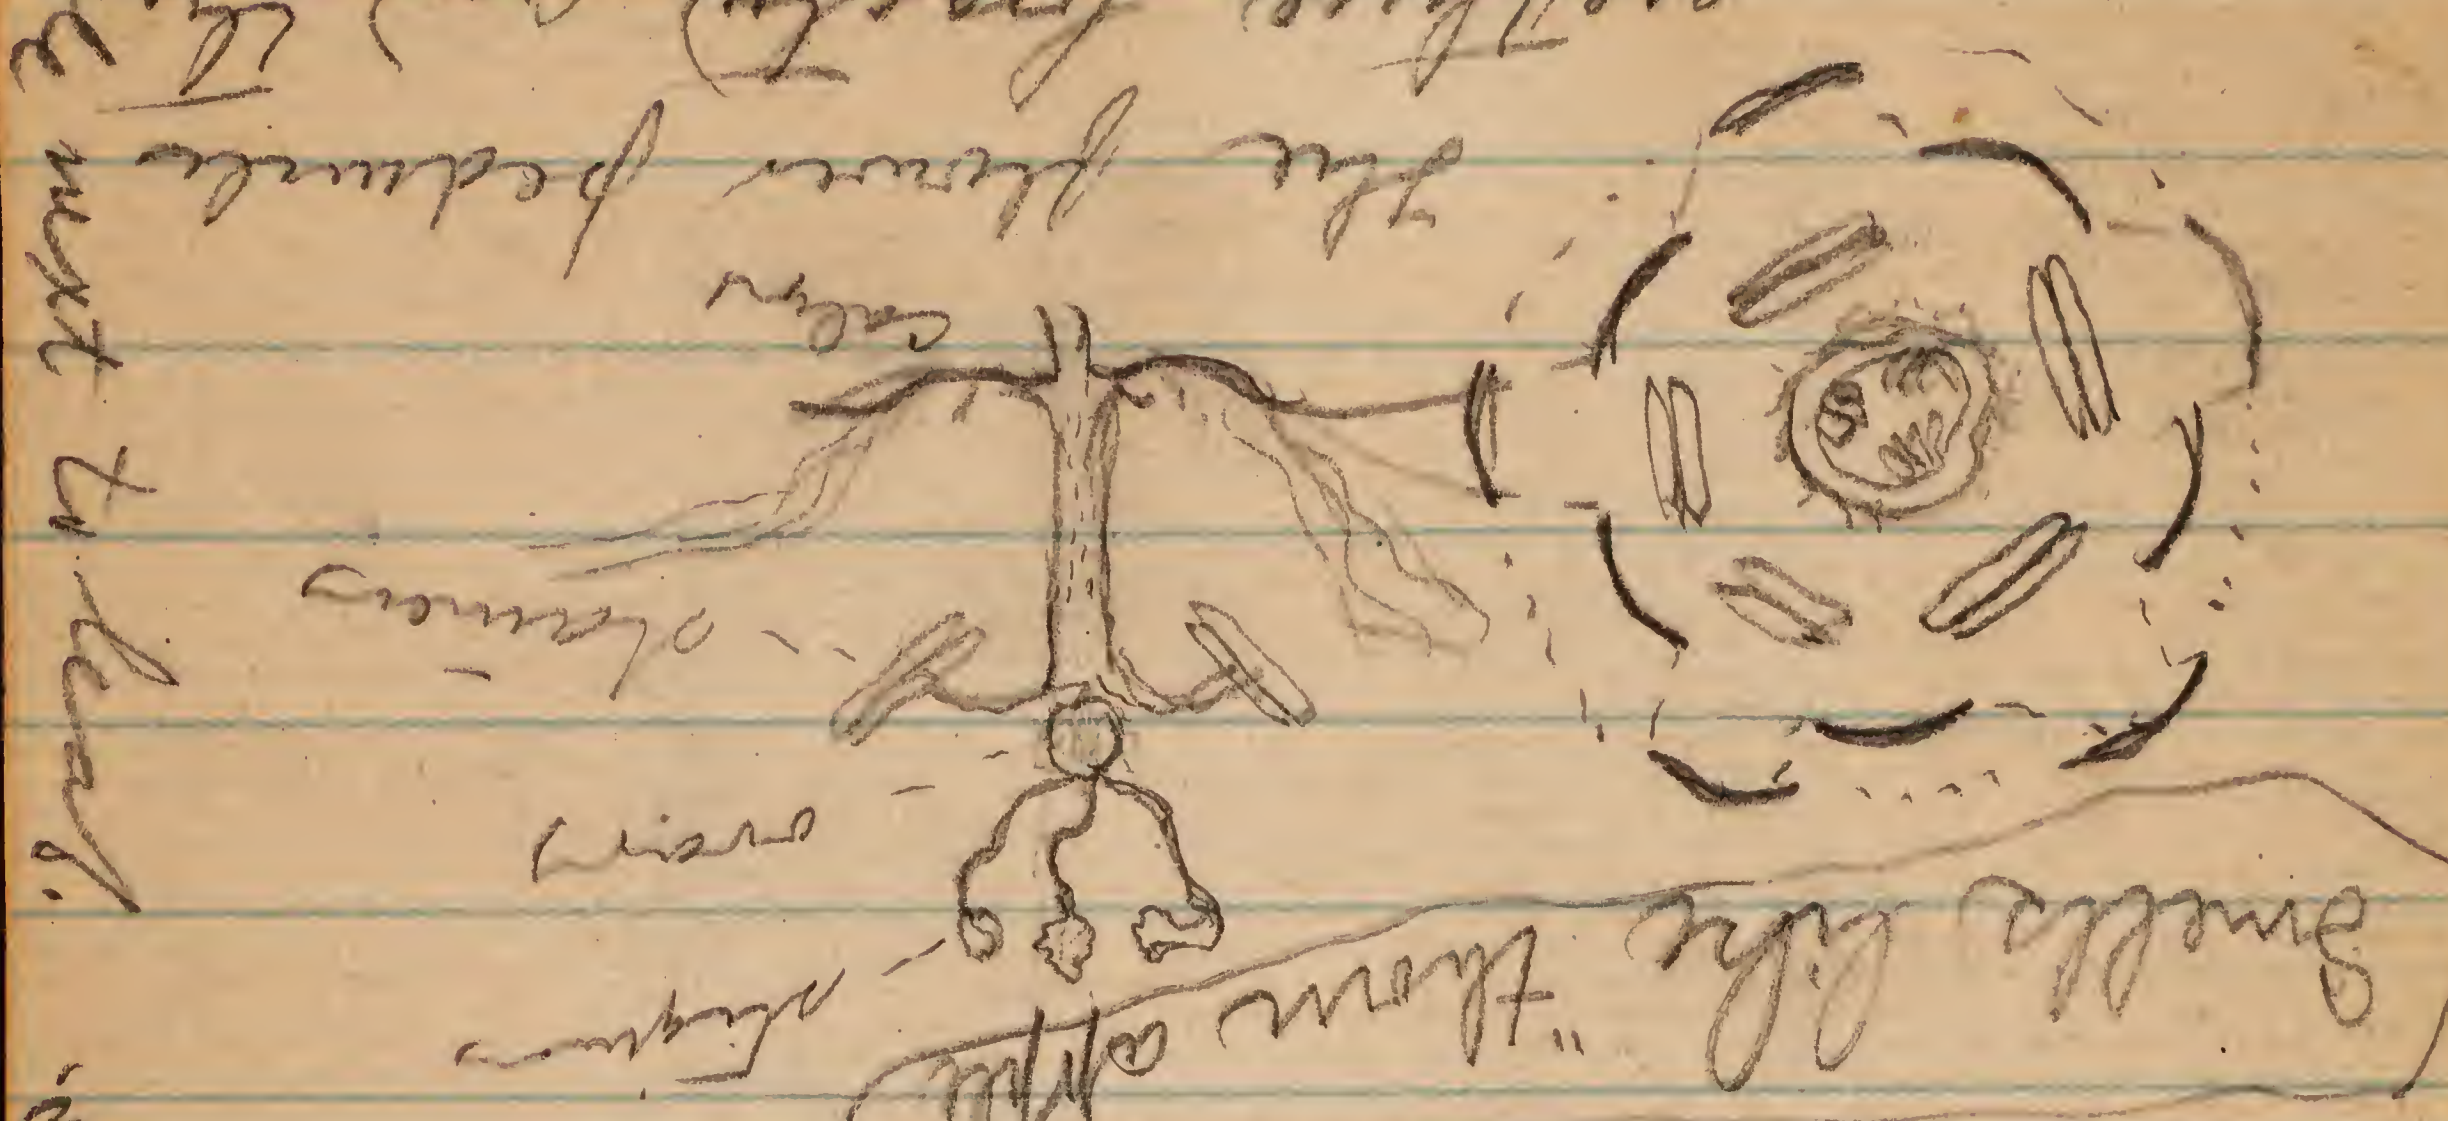 Smells like "thorn apple
stigmas
ovary
stamens
calyx
the flower peduncle
next to leaf.